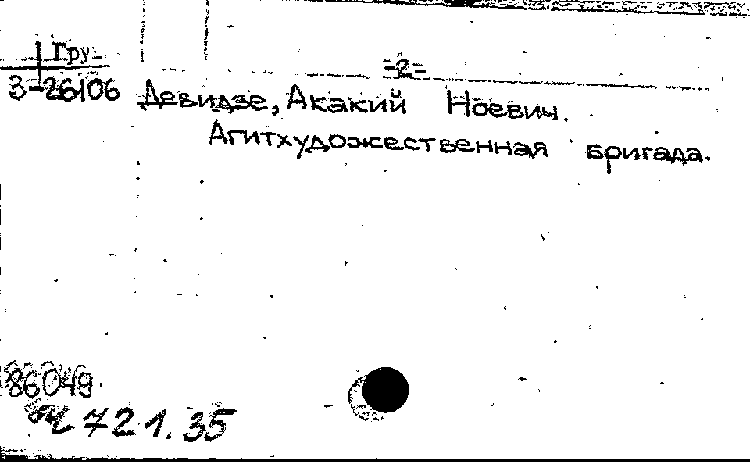 Гру.
-2-
3-26106 Девидзе, Акакий Ноевич.
Агитхудожественная бригада.
86049
Ч 721.35